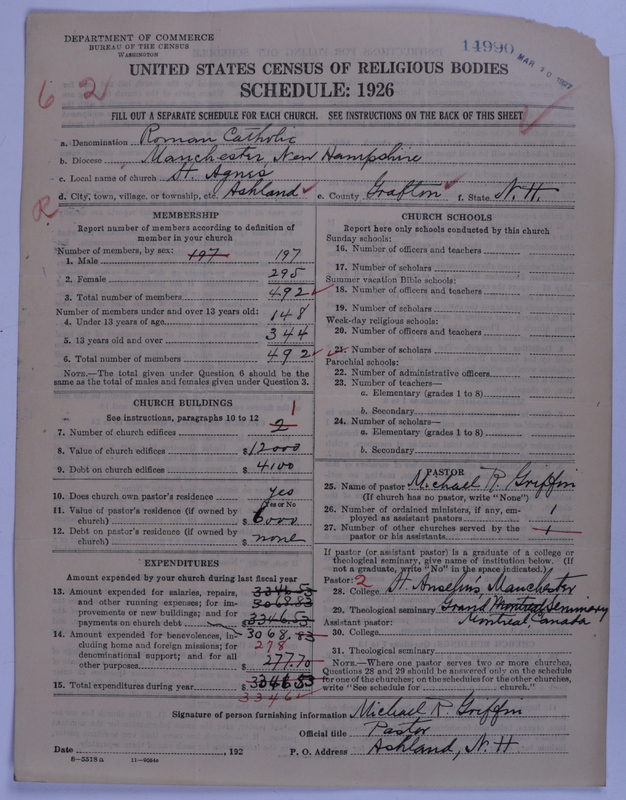 DEPARTMENT OF COMMERCE
BUREAU OF THE CENSUS
WASHINGTON
14990
MAR 10 1927
UNITED STATES CENSUS OF RELIGIOUS BODIES
SCHEDULE: 1926
6 2
FILL OUT A SEPARATE SCHEDULE FOR EACH CHURCH. SEE INSTRUCTIONS ON THE BACK OF THIS SHEET
a. Denomination Roman Catholic
b. Diocese Manchester, New Hampshire
c. Local name of church St. Agnes
d. City, town, village, or township, etc. Ashland e. County Grafton f. State N. H.
R
MEMBERSHIP
Report number of members according to definition of
member in your church
Number of members, by sex: 197
1. Male 197
2. Female 295
3. Total number of members 492
Number of members under and over 13 years old:
4. Under 13 years of age 148
5. 13 years old and over 344
6. Total number of members 492
NOTE.—The total given under Question 6 should be the
same as the total of males and females given under Question 3.
CHURCH BUILDINGS
See instructions, paragraphs 10 to 12
1
7. Number of church edifices 2
8. Value of church edifices $12000
9. Debt on church edifices $4100
10. Does church own pastor's residence yes
Yes or No
11. Value of pastor's residence (if owned by
church) $6000
12. Debt on pastor's residence (if owned by
church) $none
EXPENDITURES
Amount expended by your church during last fiscal year
13. Amount expended for salaries, repairs, 3346.53
and other running expenses; for im- 3068.83
provements or new buildings; and for
payments on church debt $3346.53
14. Amount expended for benevolences, in- 3068.83
cluding home and foreign missions; for 278
denominational support; and for all
other purposes $277.70
15. Total expenditures during year $3346.53
3346
CHURCH SCHOOLS
Report here only schools conducted by this church
Sunday schools:
16. Number of officers and teachers
17. Number of scholars
Summer vacation Bible schools:
18. Number of officers and teachers
19. Number of scholars
Week-day religious schools:
20. Number of officers and teachers
21. Number of scholars
Parochial schools:
22. Number of administrative officers
23. Number of teachers—
a. Elementary (grades 1 to 8)
b. Secondary
24. Number of scholars—
a. Elementary (grades 1 to 8)
b. Secondary
PASTOR
25. Name of pastor Michael R. Griffin
(If church has no pastor, write "None")
26. Number of ordained ministers, if any, em-
ployed as assistant pastors 1
27. Number of other churches served by the
pastor or his assistants 1
If pastor (or assistant pastor) is a graduate of a college or
theological seminary, give name of institution below. (If
not a graduate, write "No" in the space indicated.)
Pastor: 2
28. College St. Anselm's Manchester
29. Theological seminary Grand Montreal Seminary
Assistant pastor: Montreal, Canada
30. College
31. Theological seminary
NOTE.—Where one pastor serves two or more churches,
Questions 28 and 29 should be answered only on the schedule
for one of the churches; on the schedules for the other churches,
write "See schedule for church."
Signature of person furnishing information Michael R. Griffin
Official title Pastor
Date , 192 P. O. Address Ashland, N. H
8-5318 a